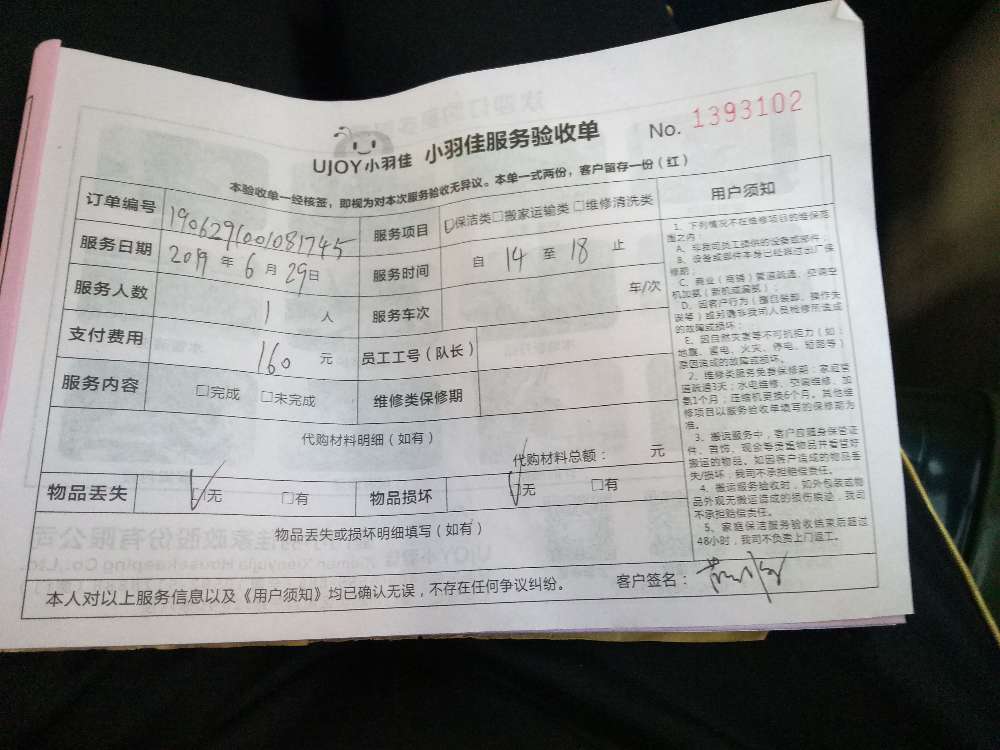 UJOY小羽佳 小羽佳服务验收单 No. 1393102
本验收单一经核签，即视为对本次服务验收无异议。本单一式两份，客户留存一份（红）
订单编号 1906291001081745 服务项目 □保洁类□搬家运输类 □维修清洗类
服务日期 2019 年 6 月 29 日 服务时间 自 14 至 18 止
服务人数 1 人 服务车次 车/次
支付费用 160 元 员工工号（队长）
服务内容 □完成 □未完成 维修类保修期
代购材料明细（如有）
代购材料总额： 元
物品丢失 □无 □有 物品损坏 □无 □有
物品丢失或损坏明细填写（如有）
本人对以上服务信息以及《用户须知》均已确认无误，不存在任何争议纠纷。 客户签名：
用户须知
1、下列情况不在维修项目的维保范
围之内：
A、非我司员工提供的设备或部件；
B、设备或部件本身已经超过出厂保
修期；
C、商业（商铺）管道疏通、空调空
机加氨（新机或漏氨）；
D、因客户行为（擅自装卸、操作失
误等）或另请非我司人员检修所造成
的故障或损坏；
E、因自然灾害等不可抗拒力（如：
地震、雷电、火灾、停电、短路等）
原因造成的故障或损坏。
2、维修类服务免费保修期：家庭管
道疏通3天；水电维修、空调维修、加
氨1个月；压缩机更换6个月。其他维
修项目以服务验收单填写的保修期为
准。
3、搬运服务中，客户应随身保管证
件、首饰、现金等贵重物品并看管好
搬运的物品。如因客户造成的物品丢
失/损坏，我司不承担赔偿责任。
4、搬运服务验收时，如外包装或物
品外观无搬运造成的损伤痕迹，我司
不承担赔偿责任。
5、家庭保洁服务验收结束后超过
48小时，我司不负责上门返工。